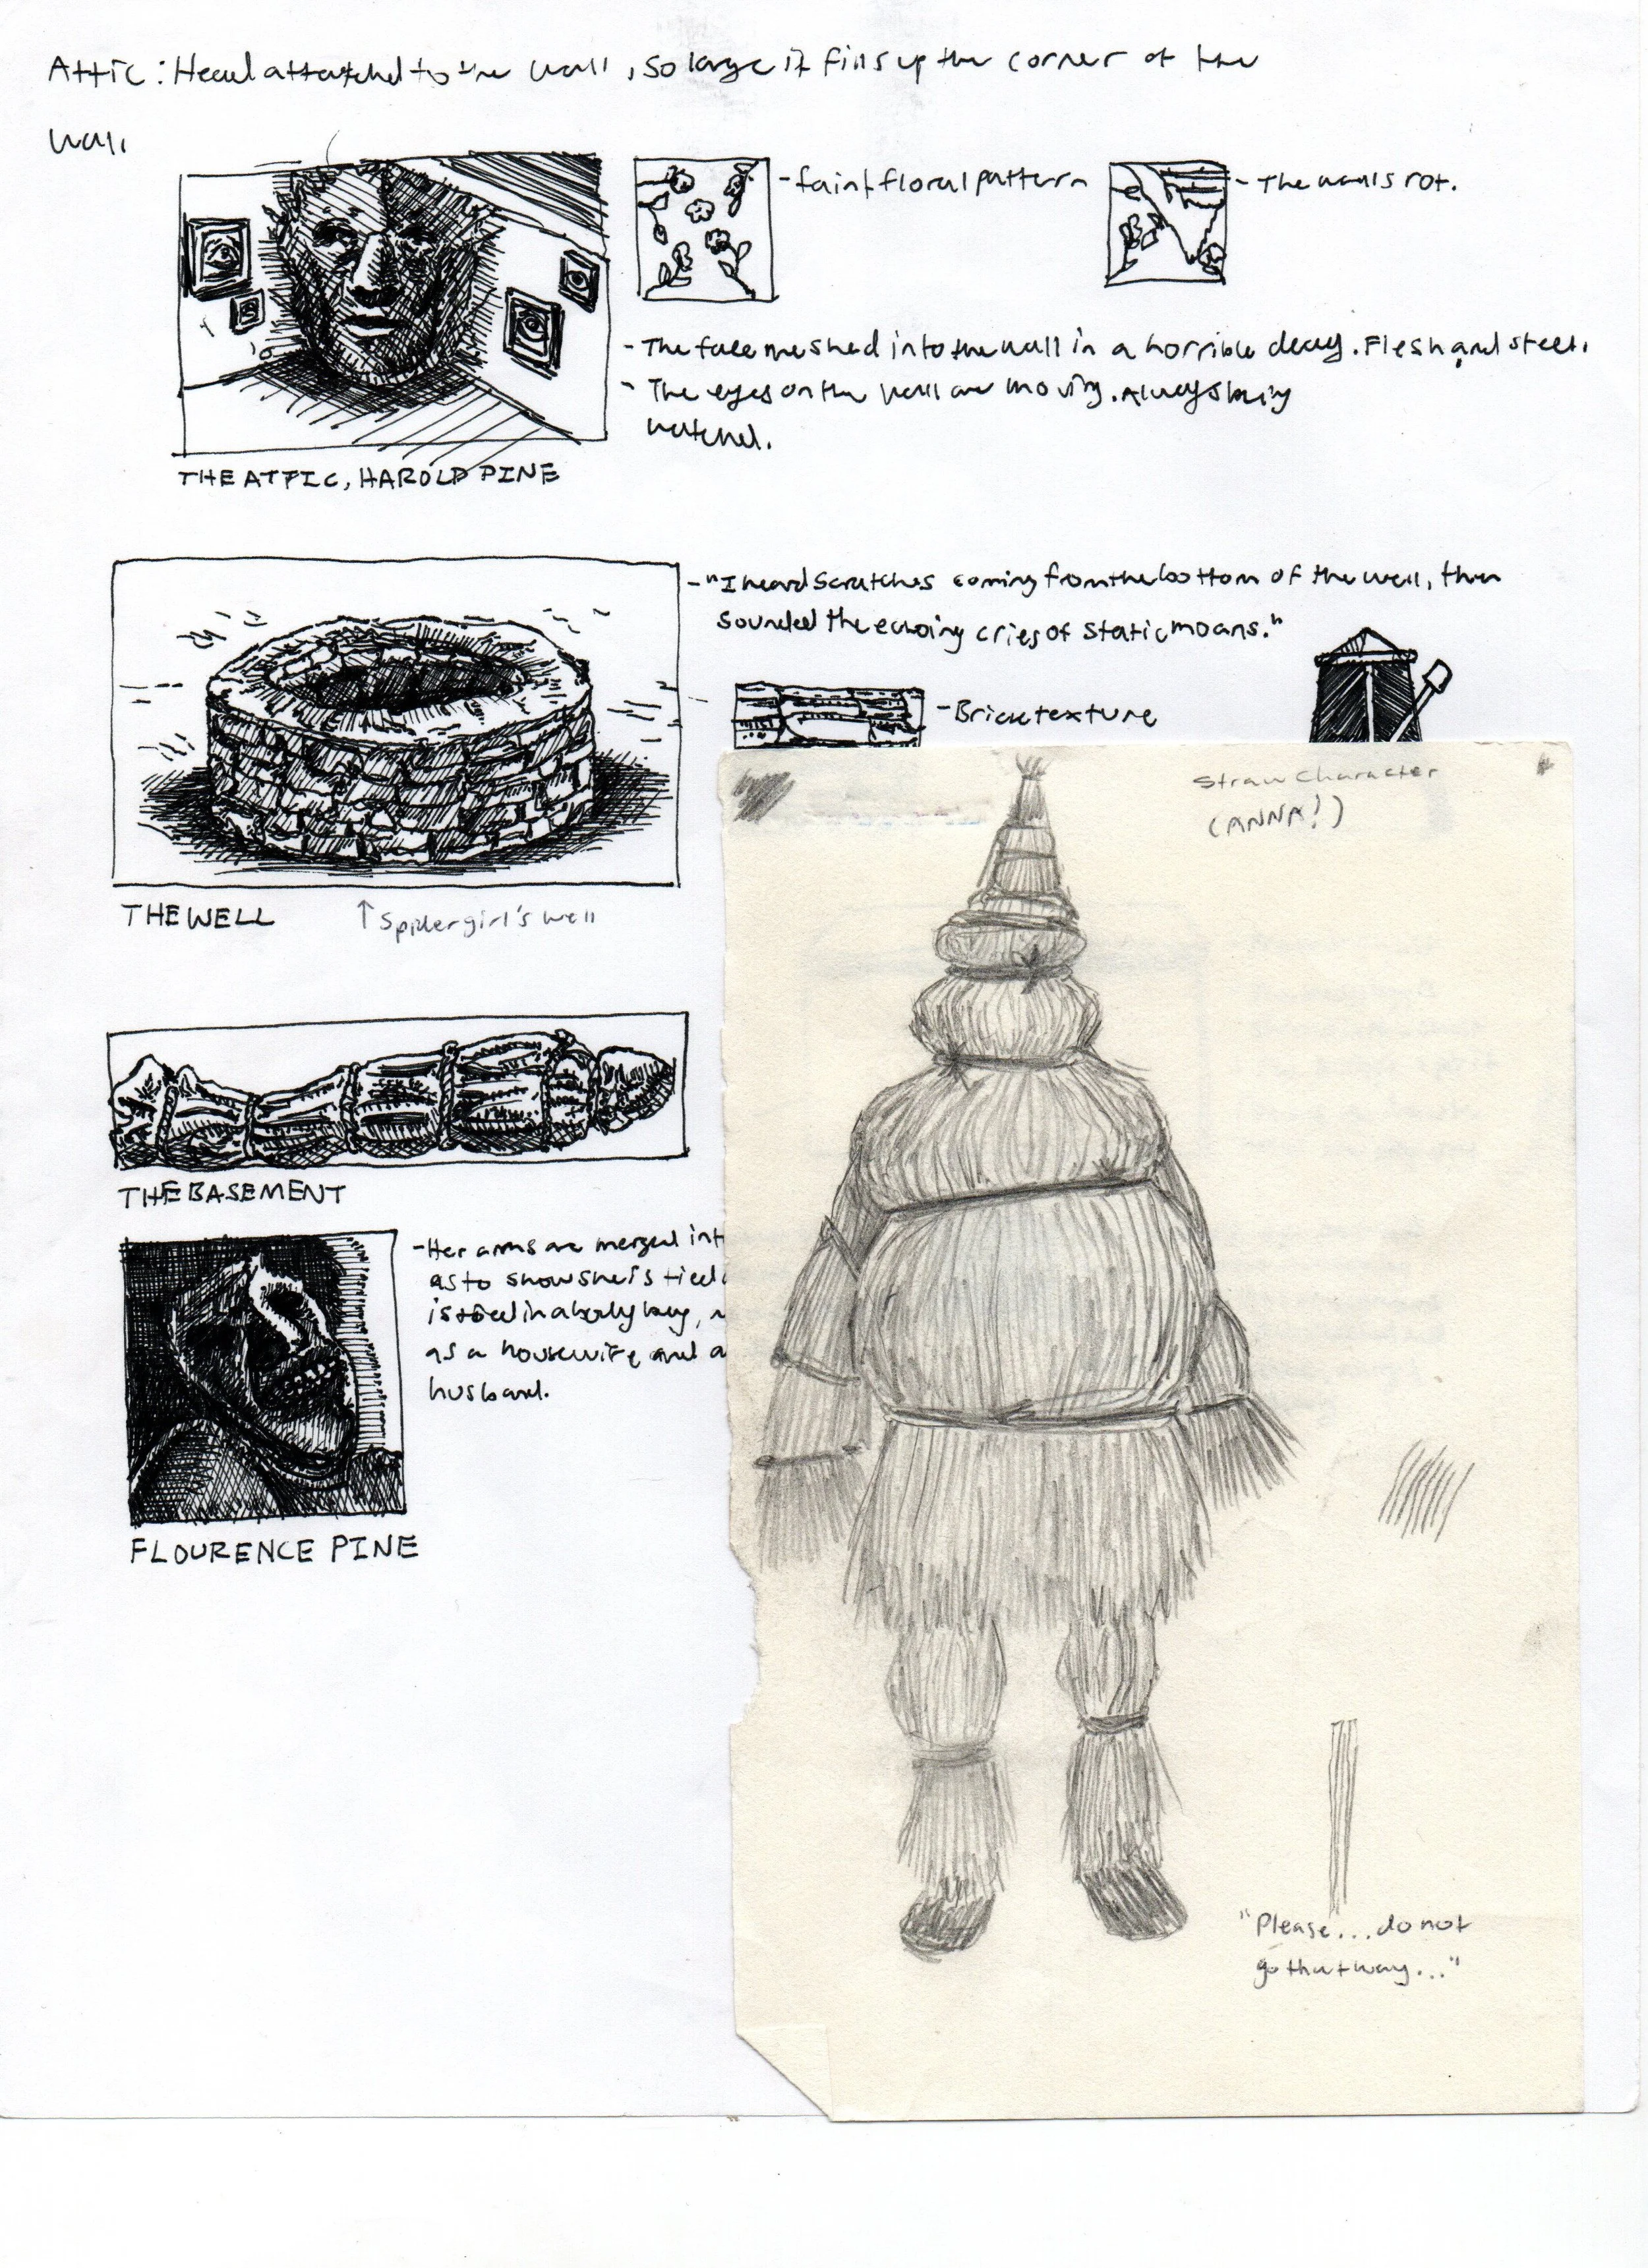 Attic: Head attatched to the wall, so large it fills up the corner of the
wall
- faint floral pattern
- The walls rot.
- The face meshed into the wall in a horrible decay. Flesh and steel.
- The eyes on the wall are moving. Always being
watched.
THE ATTIC, HAROLD PINE
- "I heard scratches coming from the bottom of the well, then
sounded the echoing cries of static moans."
- Brick texture
THE WELL
↑ Spidergirl's well
THE BASEMENT
- Her arms are merged int
as to show she is tied
is tied in a body bag,
as a housewife and a
husband.
FLOURENCE PINE
Straw Character
(ANNA!)
"Please... do not
go that way..."